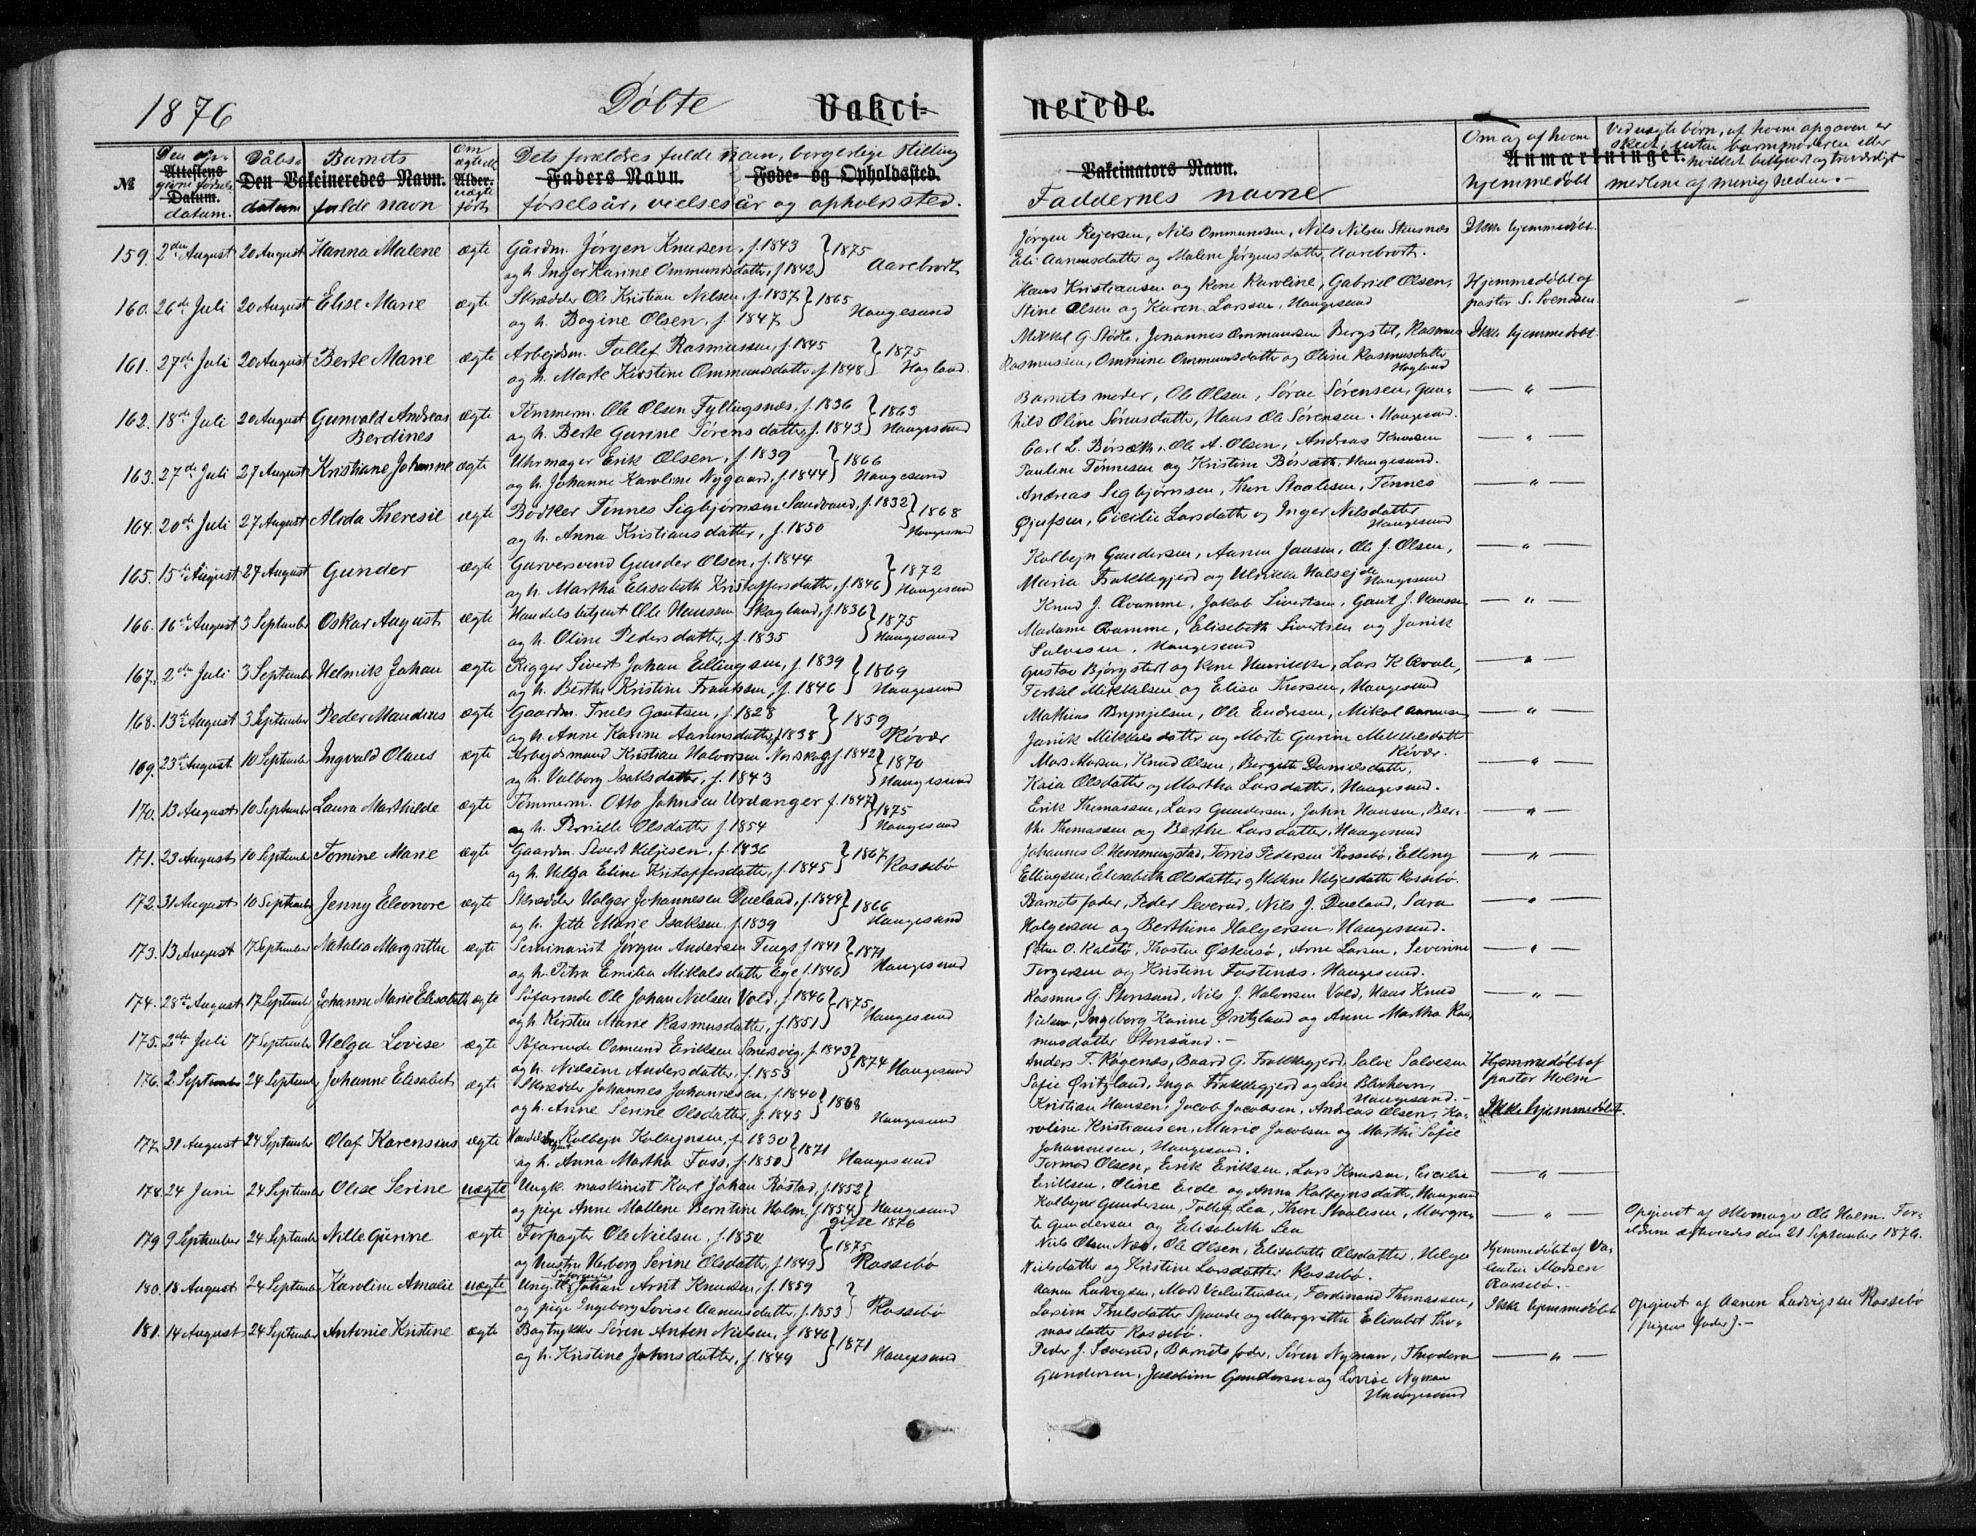 1876 Døbte Vakcinerede.
№ Den op-givne fødsels datum. Attestens Datum. Dåbs-datum Barnets fulde navn Den Vakcineredes Navn. Om ægte elle uægte født Alder. Dets forældres fulde navn, borgerlige stilling
Faders Navn. Føde- og Opholdssted.
fødselsår, vielsesår og opholdssted.
Vakcinators Navn.
Faddernes navne
Om og af hvem hjemmedøbt
Anmærkninger.
Ved uægte børn, af hvem opgaven er skeet, enten barnmoderen eller hvilket bekjent og troværdigt medlem af menigheden.-
159. 2den August 20 August Hanna Malene ægte Gårdm. Jørgen Knutsen, f. 1843 } 1875
og h. Inger Karine Ommundsdatter, f. 1842 Aarebrot
Jørgen Rejersen, Nils Ommundsen, Nils Nilsen Stensnæs Ikke hjemmedøbt.
Eli Aanensdatter og Malene Jørgensdatter, Aarebrot.
160. 26de Juli 20 August Elise Marie ægte Skrædder Ole Kristian Nilsen, f. 1837 } 1865
og h. Bogine Olsen, f. 1847 Haugesund
Hans Kristiansen og Kone Karoline, Gabriel Olsen, Hjemmedøbt af
Stine Olsen og Karen Larssen, Haugesund pastor S. Svendsen.
161. 27de Juli 20 August Berte Marie ægte Arbejdsm. Tollef Rasmussen, f. 1845 } 1875
og h. Marte Kirstine Ommundsdatter, f. 1848 Hagland.
Mikkel G. Støle, Johannes Ommundsen Bergstøl, Rasmus Ikke hjemmedøbt.
Rasmussen, Ommine Ommundsdatter og Oline Rasmusdatter
Hagland
162. 18de Juli 20 August Gunvald Andreas ægte Tømmerm. Ole Olsen Fyllingsnæs, f. 1836 } 1863
Berdines og h. Berte Gurine Sørensdatter, f. 1843 Haugesund
Barnets moder, Ole Olsen, Søren Sørensen, Gun- — " —
hild Oline Sørensdatter, Hans Ole Sørensen. Haugesund.
163. 27de Juli 27 August Kristiane Johanne ægte Uhrmager Erik Olsen, f. 1839 } 1866
og h. Johanne Karoline Nygaard, f. 1844 Haugesund
Carl L. Børsæth, Ole A. Olsen, Andreas Knutsen — " —
Pauline Tønnesen og Kristine Børsæth, Haugesund.
164. 20de Juli 27 August Alida Theresie ægte Bødker Tønnes Sigbjørnsen Sandvand, f. 1832 } 1868
og h. Anna Kristiansdatter, f. 1850 Haugesund
Andreas Sigbjørnsen, Thor Staalesen, Tønnes — " —
Øjufsen, Cecilie Larsdatter og Inger Nilsdatter
Haugesund
165. 15de August 27 August Gunder ægte Garversvend Gunder Olsen, f. 1844 } 1872
og h. Martha Elisabeth Kristoffersdatter, f. 1846 Haugesund
Kolbejn Gundersen, Aanen Jansen, Ole J. Olsen, — " —
Maria Frakkegjerd og Ulrikke Halseide
Haugesund
166. 16de August 3 September Oskar August ægte Handelsbetjent Ole Hanssen Skogland, f. 1836 } 1875
og h. Oline Pedersdatter, f. 1835 Haugesund
Knud J. Qvamme, Jakob Sivertsen, Gaut J. Hanssen — " —
Madame Qvamme, Elisebeth Sivertsen og Janik
Salvesen, Haugesund
167. 2de Juli 3 September Helmik Johan ægte Rigger Sivert Johan Ellingsen, f. 1839 } 1869
og h. Berthe Kristine Frantzen, f. 1846 Haugesund
Gustav Bjørgsted og Kone Henrikke, Lars K. Qvale, — " —
Terkel Mikkelsen og Elisa Thorsen, Haugesund
168. 13de August 3 September Peder Maudius ægte Gaardm. Truls Gautsen, f. 1828 } 1859
og h. Anne Karine Aanensdatter, f. 1838 Røvær
Mathias Brynjelsen, Ole Endresen, Mikal Aanensen — " —
Janik Mikkelsdatter og Marte Gurine Mikkelsdatt
Røvær.
169. 23de August. 10 September Ingvald Olaus ægte Arbejdsmand Kristian Halvorsen Nordskog, f. 1842 } 1870
og h. Valborg Isaksdatter, f. 1843 Haugesund
Mons Monsen, Knud Olsen, Bergith Danielsdatter, — " —
Kaia Olsdatter og Martha Larsdatter, Haugesund.
170. 13 August 10 September Laura Marthilde ægte Tømmerm. Otto Johnsen Urdanger f. 1847 } 1875
og h. Pernille Olsdatter f. 1854 Haugesund
Erik Thomassen, Lars Gundersen, John Hansen, Ber- — " —
the Thomassen og Berthe Larsdatter, Haugesund
171. 23 August 10 September Tomine Marie ægte Gaardm. Sivert Heljesen, f. 1836 } 1867
og h. Helga Eline Kristoffersdatter, f. 1845 Rossebø
Johannes O. Hemmingstad, Torris Pedersen Rossebø, Elling — " —
Ellingsen, Elisabeth Olsdatter og Helene Heljesdatter Rossebø.
172. 31 August 10 September Jenny Eleonore ægte Skrædder Holger Johannesen Dueland, f. 1844 } 1866
og h. Jette Marie Isaksen f. 1839 Haugesund
Barnets fader, Peder Severud, Nils J. Dueland, Sara — " —
Holgersen og Berthine Holgersen, Haugesund.
173. 13 August 17 September Natalia Margrethe ægte Seminarist Jørgen Andersen Tengs f. 1841 } 1871
og h. Petra Emilia Mikalsdatter Ege f. 1846 Haugesund
Peter O. Kalstø, Thosten Østensø, Arne Larsen, Severine — " —
Torgersen og Kristine Fostenæs, Haugesund.
174. 28de August 17 September Johanne Marie Elisabeth ægte Søfarende Ole Johan Nielsen Vold, f. 1846 } 1875
og h. Kirsten Marie Rasmusdatter, f. 1851 Haugesund
Rasmus G. Storsund, Nils J. Halvorsen Vold, Hans Knud — " —
Nielsen, Ingeborg Karine Qritzland og Anne Martha Ras
musdatter Storsund.-
175. 2de Juli 17 September Helga Lovise ægte Søfarende Osmund Eriksen Smersvig, f. 1843 } 1874
og h. Nielsine Andersdatter, f. 1853 Haugesund
Anders T. Røgenæs, Baard G. Frakkegjerd, Salve Salvesen Hjemmedøbt af
Sofie Qritzland, Inga Frakkegjerd og Lise Blikhavn, pastor Holm
Haugesund.-
176. 2 September 24 September Johanne Elisabet ægte Skrædder Johannes Johannesen, f. 1840 } 1868
og h. Anne Serine Olsdatter, f. 1845 Haugesund
Kristian Hansen, Jacob Jacobsen, Andreas Olsen, Ka- Ikke hjemmedøbt.
roline Kristiansen, Marie Jacobsen og Marthe Sofie
Johannesen, Haugesund.
177. 31 August 24 September Olaf Karensius ægte Handelsbetjent Kolbejn Kolbejnsen, f. 1830 } 1871
og h. Anna Martha Foss, f. 1850 Haugesund
Tormod Olsen, Erik Eriksen, Lars Knudsen, Cicilie — " —
Eriksen, Oline Eide og Anna Kolbejnsdatter, Haugesund
178. 24 Juni 24 September Olise Serine uægte Ungk. maskinist Karl Johan Røstad, f. 1852 }
og pige Anne Mallene Berntine Holm, f. 1854 Haugesund
gifte 1876
Kolbejne Gundersen, Tollef Lea, Thor Staalesen, Margre- — " — Opgivet af skomager Ole Holm. For-
te Gundersen og Elisabeth Lea ældrene ægteviedes den 21 September 1876.
179 9 September 24 September Nille Gurine ægte Forpagter Ole Nielsen, f. 1850 } 1875
og hustru Herborg Serine Olsdatter, f. 1849 Rossebø
Niels Olsen Næs, Ole Olsen, Elisabeth Olsdatter, Helga Hjemmedøbt af Va-
Nielsdatter og Kristine Larsdatter Rossebø. lentin Madsen
Rossebø.-
180. 18 August 24 September Karoline Amalie uægte Ungk. Søfarende Johan Arnt Knudsen, f. 1859 }
og pige Ingeborg Lovise Aanensdatter, f. 1853 Rossebø
Aanen Ludvigsen, Mads Valentinsen, Ferdinand Thomassen, Ikke hjemmedøbt Opgivet af Aanen Ludvigsen Rossebø
Thulsdatter Spande og Margrethe Elisabet Tho- (pigens fader).-
masdatter Rossebø.
181. 14 August 24 September Antonie Kristine ægte Bogtrykker Søren Anton Nielsen, f. 1846 } 1871
og h. Kristine Johnsdatter, f. 1849 Haugesund
Peder J. Sæverud, Barnets fader, Søren Nyman, Theodora — " —
Gundersen, Jacobine Gundersen og Lovise Nyman
Haugesund